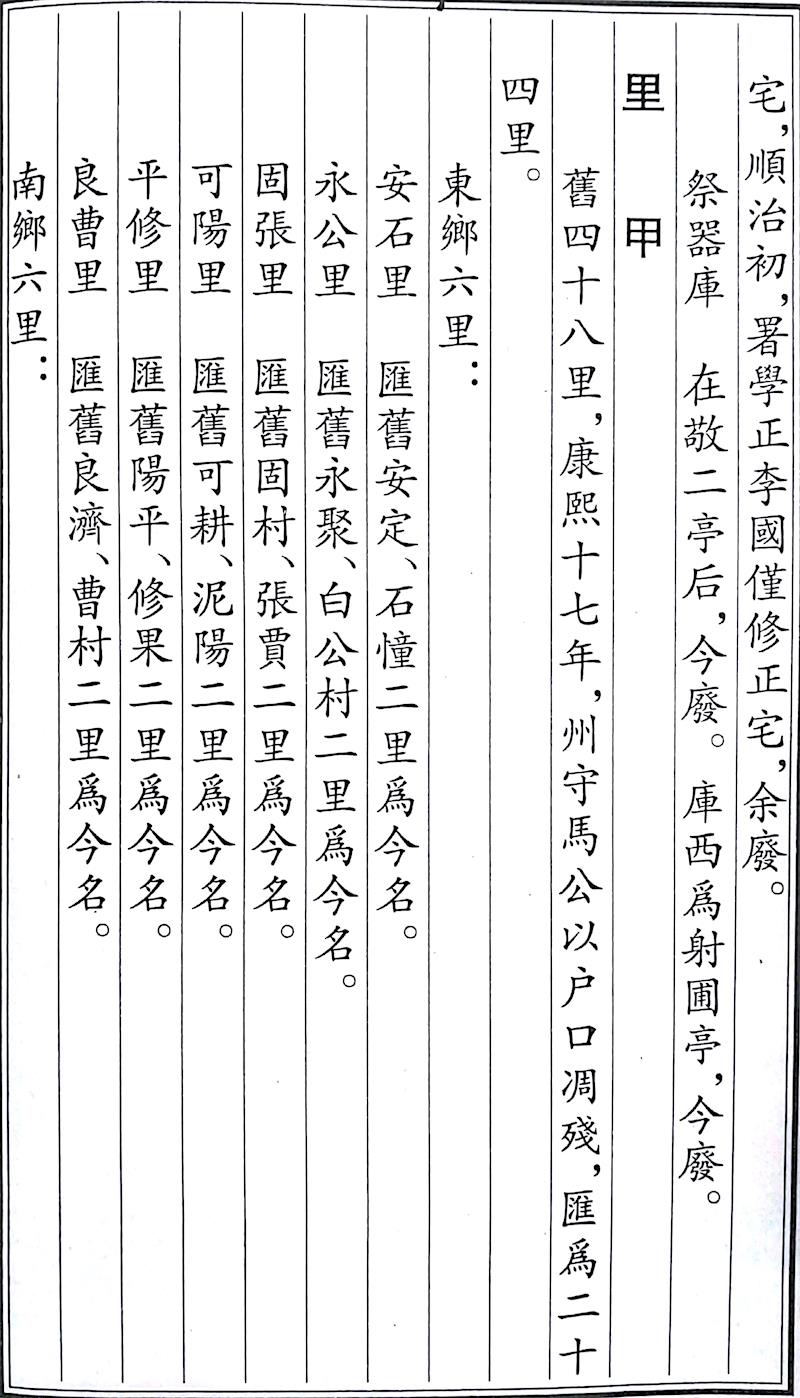 宅，順治初，署學正李國僅修正宅，余廢。
祭器庫　在敬二亭后，今廢。庫西爲射圃亭，今廢。
里　甲
舊四十八里，康熙十七年，州守馬公以户口凋殘，匯爲二十
四里。
東鄉六里：
安石里　匯舊安定、石憧二里爲今名。
永公里　匯舊永聚、白公村二里爲今名。
固張里　匯舊固村、張賈二里爲今名。
可陽里　匯舊可耕、泥陽二里爲今名。
平修里　匯舊陽平、修果二里爲今名。
良曹里　匯舊良濟、曹村二里爲今名。
南鄉六里：